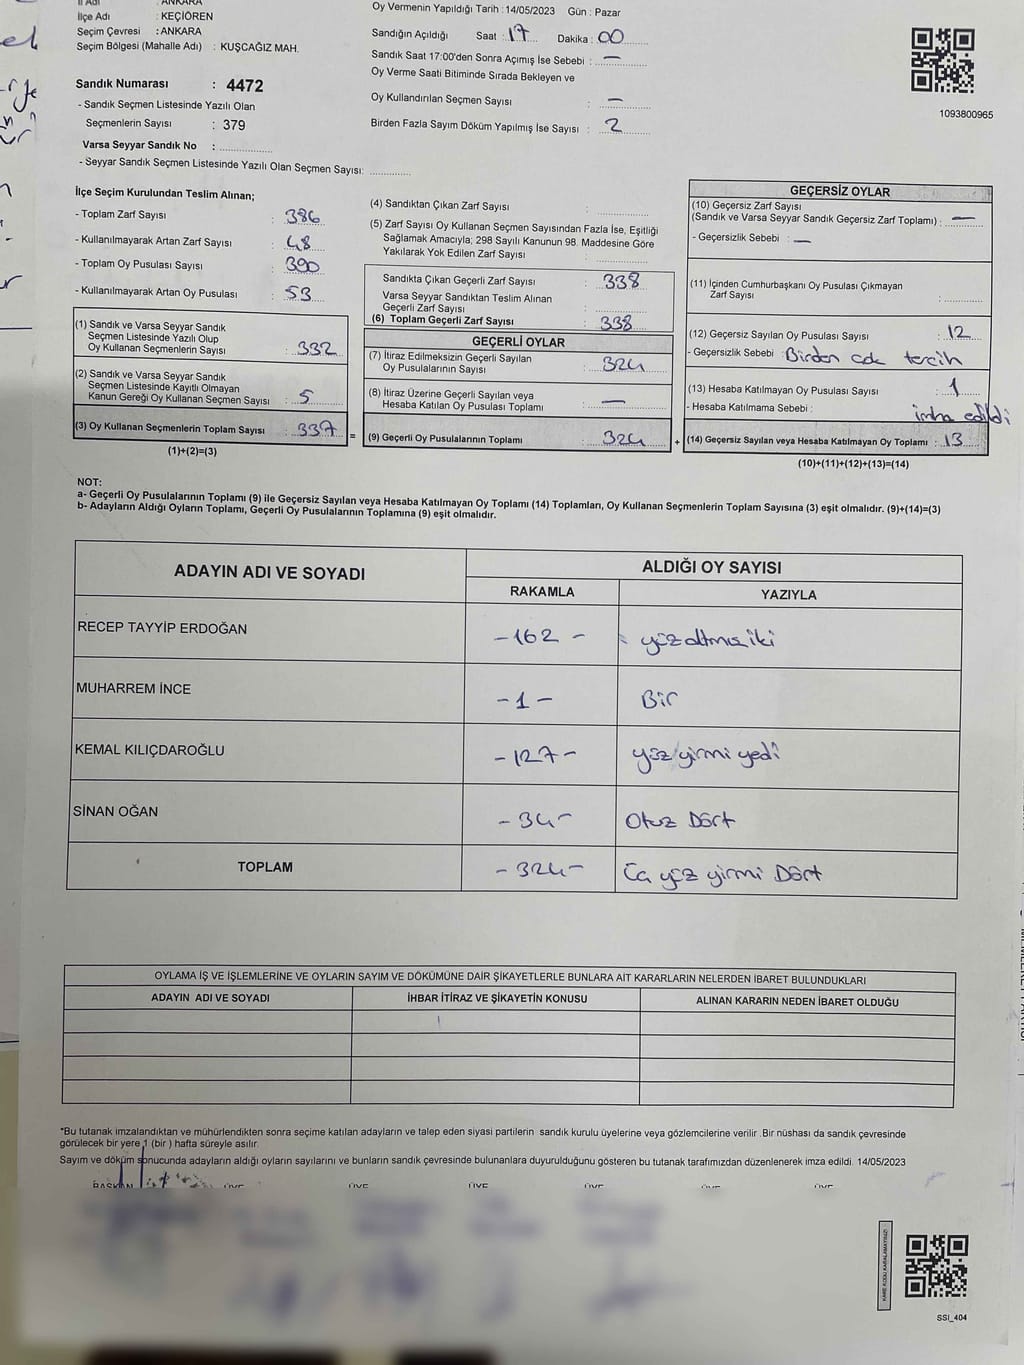 İl Adı : ANKARA
İlçe Adı : KEÇİÖREN
Seçim Çevresi : ANKARA
Seçim Bölgesi (Mahalle Adı) : KUŞCAĞIZ MAH.
Sandık Numarası : 4472
- Sandık Seçmen Listesinde Yazılı Olan
Seçmenlerin Sayısı : 379
Varsa Seyyar Sandık No :
- Seyyar Sandık Seçmen Listesinde Yazılı Olan Seçmen Sayısı:
Oy Vermenin Yapıldığı Tarih : 14/05/2023 Gün : Pazar
Sandığın Açıldığı Saat : 17 Dakika : 00
Sandık Saat 17:00'den Sonra Açımış İse Sebebi : —
Oy Verme Saati Bitiminde Sırada Bekleyen ve
Oy Kullandırılan Seçmen Sayısı : —
Birden Fazla Sayım Döküm Yapılmış İse Sayısı : 2
1093800965
İlçe Seçim Kurulundan Teslim Alınan;
- Toplam Zarf Sayısı : 386
- Kullanılmayarak Artan Zarf Sayısı : 48
- Toplam Oy Pusulası Sayısı : 390
- Kullanılmayarak Artan Oy Pusulası : 53
(1) Sandık ve Varsa Seyyar Sandık
Seçmen Listesinde Yazılı Olup
Oy Kullanan Seçmenlerin Sayısı : 332
(2) Sandık ve Varsa Seyyar Sandık
Seçmen Listesinde Kayıtlı Olmayan
Kanun Gereği Oy Kullanan Seçmen Sayısı : 5
(3) Oy Kullanan Seçmenlerin Toplam Sayısı : 337 =
(1)+(2)=(3)
(4) Sandıktan Çıkan Zarf Sayısı :
(5) Zarf Sayısı Oy Kullanan Seçmen Sayısından Fazla İse, Eşitliği
Sağlamak Amacıyla; 298 Sayılı Kanunun 98. Maddesine Göre
Yakılarak Yok Edilen Zarf Sayısı :
Sandıkta Çıkan Geçerli Zarf Sayısı : 338
Varsa Seyyar Sandıktan Teslim Alınan
Geçerli Zarf Sayısı :
(6) Toplam Geçerli Zarf Sayısı : 338
GEÇERLİ OYLAR
(7) İtiraz Edilmeksizin Geçerli Sayılan
Oy Pusulalarının Sayısı : 324
(8) İtiraz Üzerine Geçerli Sayılan veya
Hesaba Katılan Oy Pusulası Toplamı : —
(9) Geçerli Oy Pusulalarının Toplamı : 324 +
GEÇERSİZ OYLAR
(10) Geçersiz Zarf Sayısı
(Sandık ve Varsa Seyyar Sandık Geçersiz Zarf Toplamı) : —
- Geçersizlik Sebebi : —
(11) İçinden Cumhurbaşkanı Oy Pusulası Çıkmayan
Zarf Sayısı :
(12) Geçersiz Sayılan Oy Pusulası Sayısı : 12
- Geçersizlik Sebebi : Birden çok tercih
(13) Hesaba Katılmayan Oy Pusulası Sayısı : 1
- Hesaba Katılmama Sebebi : imha edildi
(14) Geçersiz Sayılan veya Hesaba Katılmayan Oy Toplamı : 13
(10)+(11)+(12)+(13)=(14)
NOT:
a- Geçerli Oy Pusulalarının Toplamı (9) ile Geçersiz Sayılan veya Hesaba Katılmayan Oy Toplamı (14) Toplamları, Oy Kullanan Seçmenlerin Toplam Sayısına (3) eşit olmalıdır. (9)+(14)=(3)
b- Adayların Aldığı Oyların Toplamı, Geçerli Oy Pusulalarının Toplamına (9) eşit olmalıdır.
ADAYIN ADI VE SOYADI
ALDIĞI OY SAYISI
RAKAMLA YAZIYLA
RECEP TAYYİP ERDOĞAN -162- yüz altmış iki
MUHARREM İNCE -1- Bir
KEMAL KILIÇDAROĞLU -127- yüz yirmi yedi
SİNAN OĞAN -34- Otuz Dört
TOPLAM -324- Üç yüz yirmi Dört
OYLAMA İŞ VE İŞLEMLERİNE VE OYLARIN SAYIM VE DÖKÜMÜNE DAİR ŞİKAYETLERLE BUNLARA AİT KARARLARIN NELERDEN İBARET BULUNDUKLARI
ADAYIN ADI VE SOYADI İHBAR İTİRAZ VE ŞİKAYETİN KONUSU ALINAN KARARIN NEDEN İBARET OLDUĞU
*Bu tutanak imzalandıktan ve mühürlendikten sonra seçime katılan adayların ve talep eden siyasi partilerin sandık kurulu üyelerine veya gözlemcilerine verilir .Bir nüshası da sandık çevresinde
görülecek bir yere 1 (bir ) hafta süreyle asılır.
Sayım ve döküm sonucunda adayların aldığı oyların sayılarını ve bunların sandık çevresinde bulunanlara duyurulduğunu gösteren bu tutanak tarafımızdan düzenlenerek imza edildi. 14/05/2023
BAŞKAN ÜYE ÜYE ÜYE ÜYE ÜYE ÜYE
KARE KODU KARALAMAYINIZ!
SSI_404